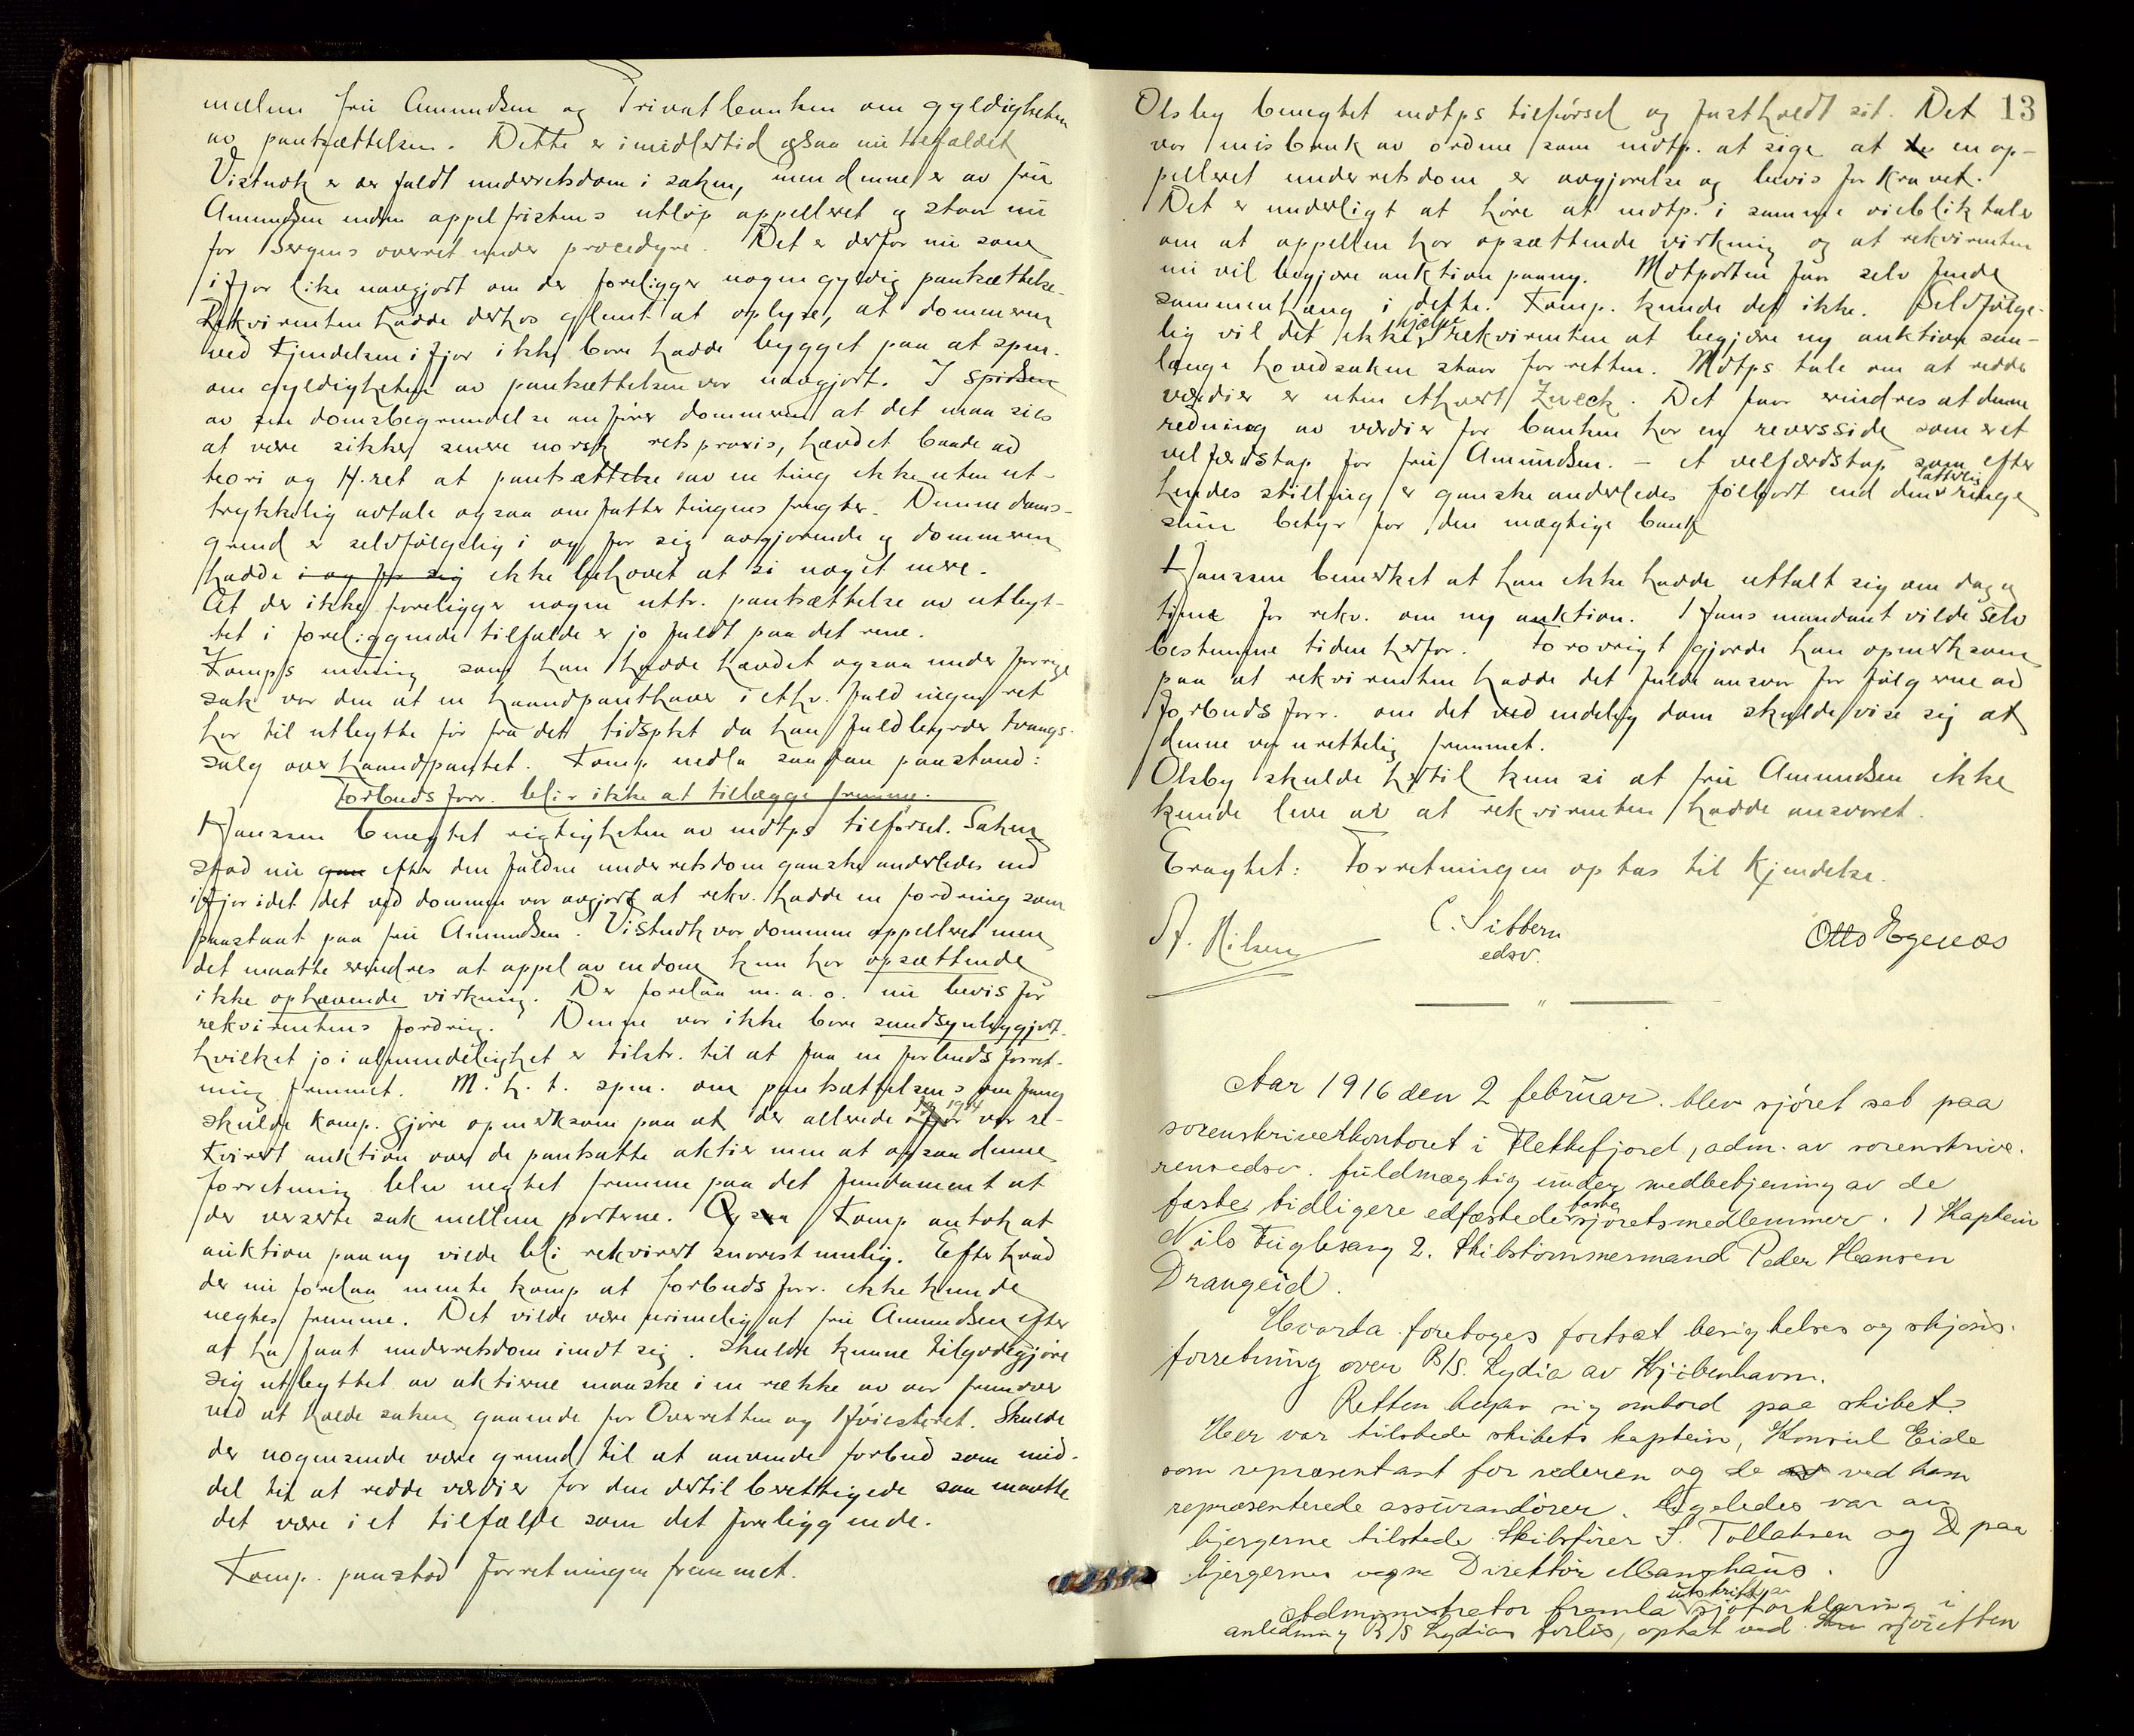 mellem frü Amundsen og Privatbanken om gyldigheten
av pantsættelsen. Dette er imidlertid ogsaa nü tilfældet
Vistnok er der faldt underretsdom i saken, men denne er av frü
Amundsen inden appelfristens utløp appelleret og staar nü
for Bergens overret under procedyre. Det er derfor nü som
ifjor like uavgjort om der foreligger nogen gyldig pantsættelse.
Rekvirenten hadde derhos glemt at oplyse, at dommeren
ved kjendelsen i fjor ikke bare hadde bygget paa at spm.
om gyldigheten av pantsættelsen var uavgjort. I spidsen
av sin domsbegrundelse anfører dommeren at det maa sies
at være sikker senere norsk retspraxis, hævdet baade ad
teori og H.ret at pantsættelse av en ting ikke uten ut-
trykkelig avtale ogsaa omfatter tingens frugter. Denne doms-
grund er selvfølgelig i og for sig avgjørende og dommeren
hadde i og for sig ikke behøvet at si noget mere.
At der ikke foreligger nogen uttr. pantsættelse av utbyt-
tet i foreliggende tilfælde er jo fuldt paa det rene.
Komp's mening som han hadde hævdet ogsaa under forrige
sak var den at en haandpanthaver i ethv. fald ingen ret
har til utbytte før fra det tidspkt da han fuldbyrder tvangs-
salg over haandpantet. Komp. nedla saadan paastand:
Forbudsforr. blir ikke at tillægge fremme.
Hanssen benegtet rigtigheten av mdtps tilførsel. Saken
stod nü gan efter den faldne underretsdom ganske anderledes end
ifjor idet det ved dommen var avgjort at rekv. hadde en fordring som
paastaat paa frü Amundsen. Vistnok var dommen appelleret men
det maatte erindres at appel av en dom kun har opsættende
ikke ophævende virkning. Der forelaa m. a. o. nü bevis for
rekvirentens fordring. Denne var ikke bare sandsynliggjort
hvilket jo i almindelighet er tilstr. til at faa en forbudsforret-
ning fremmet. M. h. t. spm. om pantsættelsens omfang
skulde komp. gjøre opmerksom paa at der allerede ifjor 1914 var re-
kvirert auktion over de pantsatte aktier men at ogsaa denne
forretning blev negtet fremme paa det fundament at
der verserte sak mellem parterne. Ogsaa Komp antok at
auktion paany vilde bli rekvirert snarest mulig. Efter hvad
der nü forelaa mente komp at forbudsforr. ikke kunde
negtes fremme. Det vilde være urimelig at frü Amundsen efter
at ha faat underretsdom imot sig, skulde kunne tilgodegjøre
sig utbyttet av aktierne maaske i en række av aar fremover
ved at holde saken gaaende for Overretten og Høiesteret. Skulde
der nogensinde være grund til at anvende forbud som mid-
del til at redde værdier for den dertil berettigede saa maatte
det være i et tilfælde som det foreliggende.
Komp. paastod forretningen fremmet.
13
Olsby benegtet mdtps tilførsel og fastholdt sit. Det
var misbruk av ordene som mdtp. at sige at de en ap-
pelleret underretsdom er avgjørelse og bevis for kravet.
Det er underligt at høre at mdtp. i samme øieblik taler
om at appellen har opsættende virkning og at rekvirenten
nü vil begjære auktion paany. Motparten faar selv finde
sammenhang i dette. Komp. kunde det ikke. Selvfølge-
lig vil det ikke hjælpe rekvirenten at begjære ny auktion saa-
længe hovedsaken staar for retten. Mdtps tale om at redde
værdier er uten ethvert Zweck. Det faar erindres at denne
redning av værdier for banken har en reversside som er et
velfærdstap for frü Amundsen. – et velfærdstap som efter
hendes stilling er ganske anderledes følbart end den latterlig ringe
sum betyr for den mægtige bank
Hanssen bemerket at han ikke hadde uttalt sig om dag og
time for rekv. om ny auktion. Hans mandant vilde selv
bestemme tiden herfor. Forøvrigt gjorde han opmerksom
paa at rekvirenten hadde det fulde ansvar for følgerne av
forbudsforr. om det ved endelig dom skulde vise sig at
denne var urettelig fremmet.
Olsby skulde hertil kun si at frü Amundsen ikke
kunde leve av at rekvirenten hadde ansvaret.
Eragtet: Forretningen optas til kjendelse.
A. Nilsen C. Sibbern Otto Egenæs
edsv.
Aar 1916 den 2 februar. blev sjøret sat paa
sorenskriverkontoret i Flekkefjord, adm. av sorenskrive-
rens edsv. fuldmægtig under medbetjening av de
faste tidligere edfæstede faste sjøretsmedlemmer. 1 Kaptein
Nils Fuglesang 2. Skibstømmermand Peder Hansen
Drangeid.
Hvorda foretoges fortsat besigtelses og skjøns-
forretning over B/S. Lydia av Kjøbenhavn.
Retten begav sig ombord paa skibet.
Her var tilstede skibets kaptein, Konsul Eide
som repræsentant for rederen og de av ved ham
repræsenterede assurandører. Ligeledes var av
bjergerne tilstede Skibsfører S. Tollaksen og D paa
bjergernes vegne Direktør Manghaus.
Administrator fremla utskrift av sjøforklaring i
anledning B/S Lydias forlis, optat ved den sjøretten